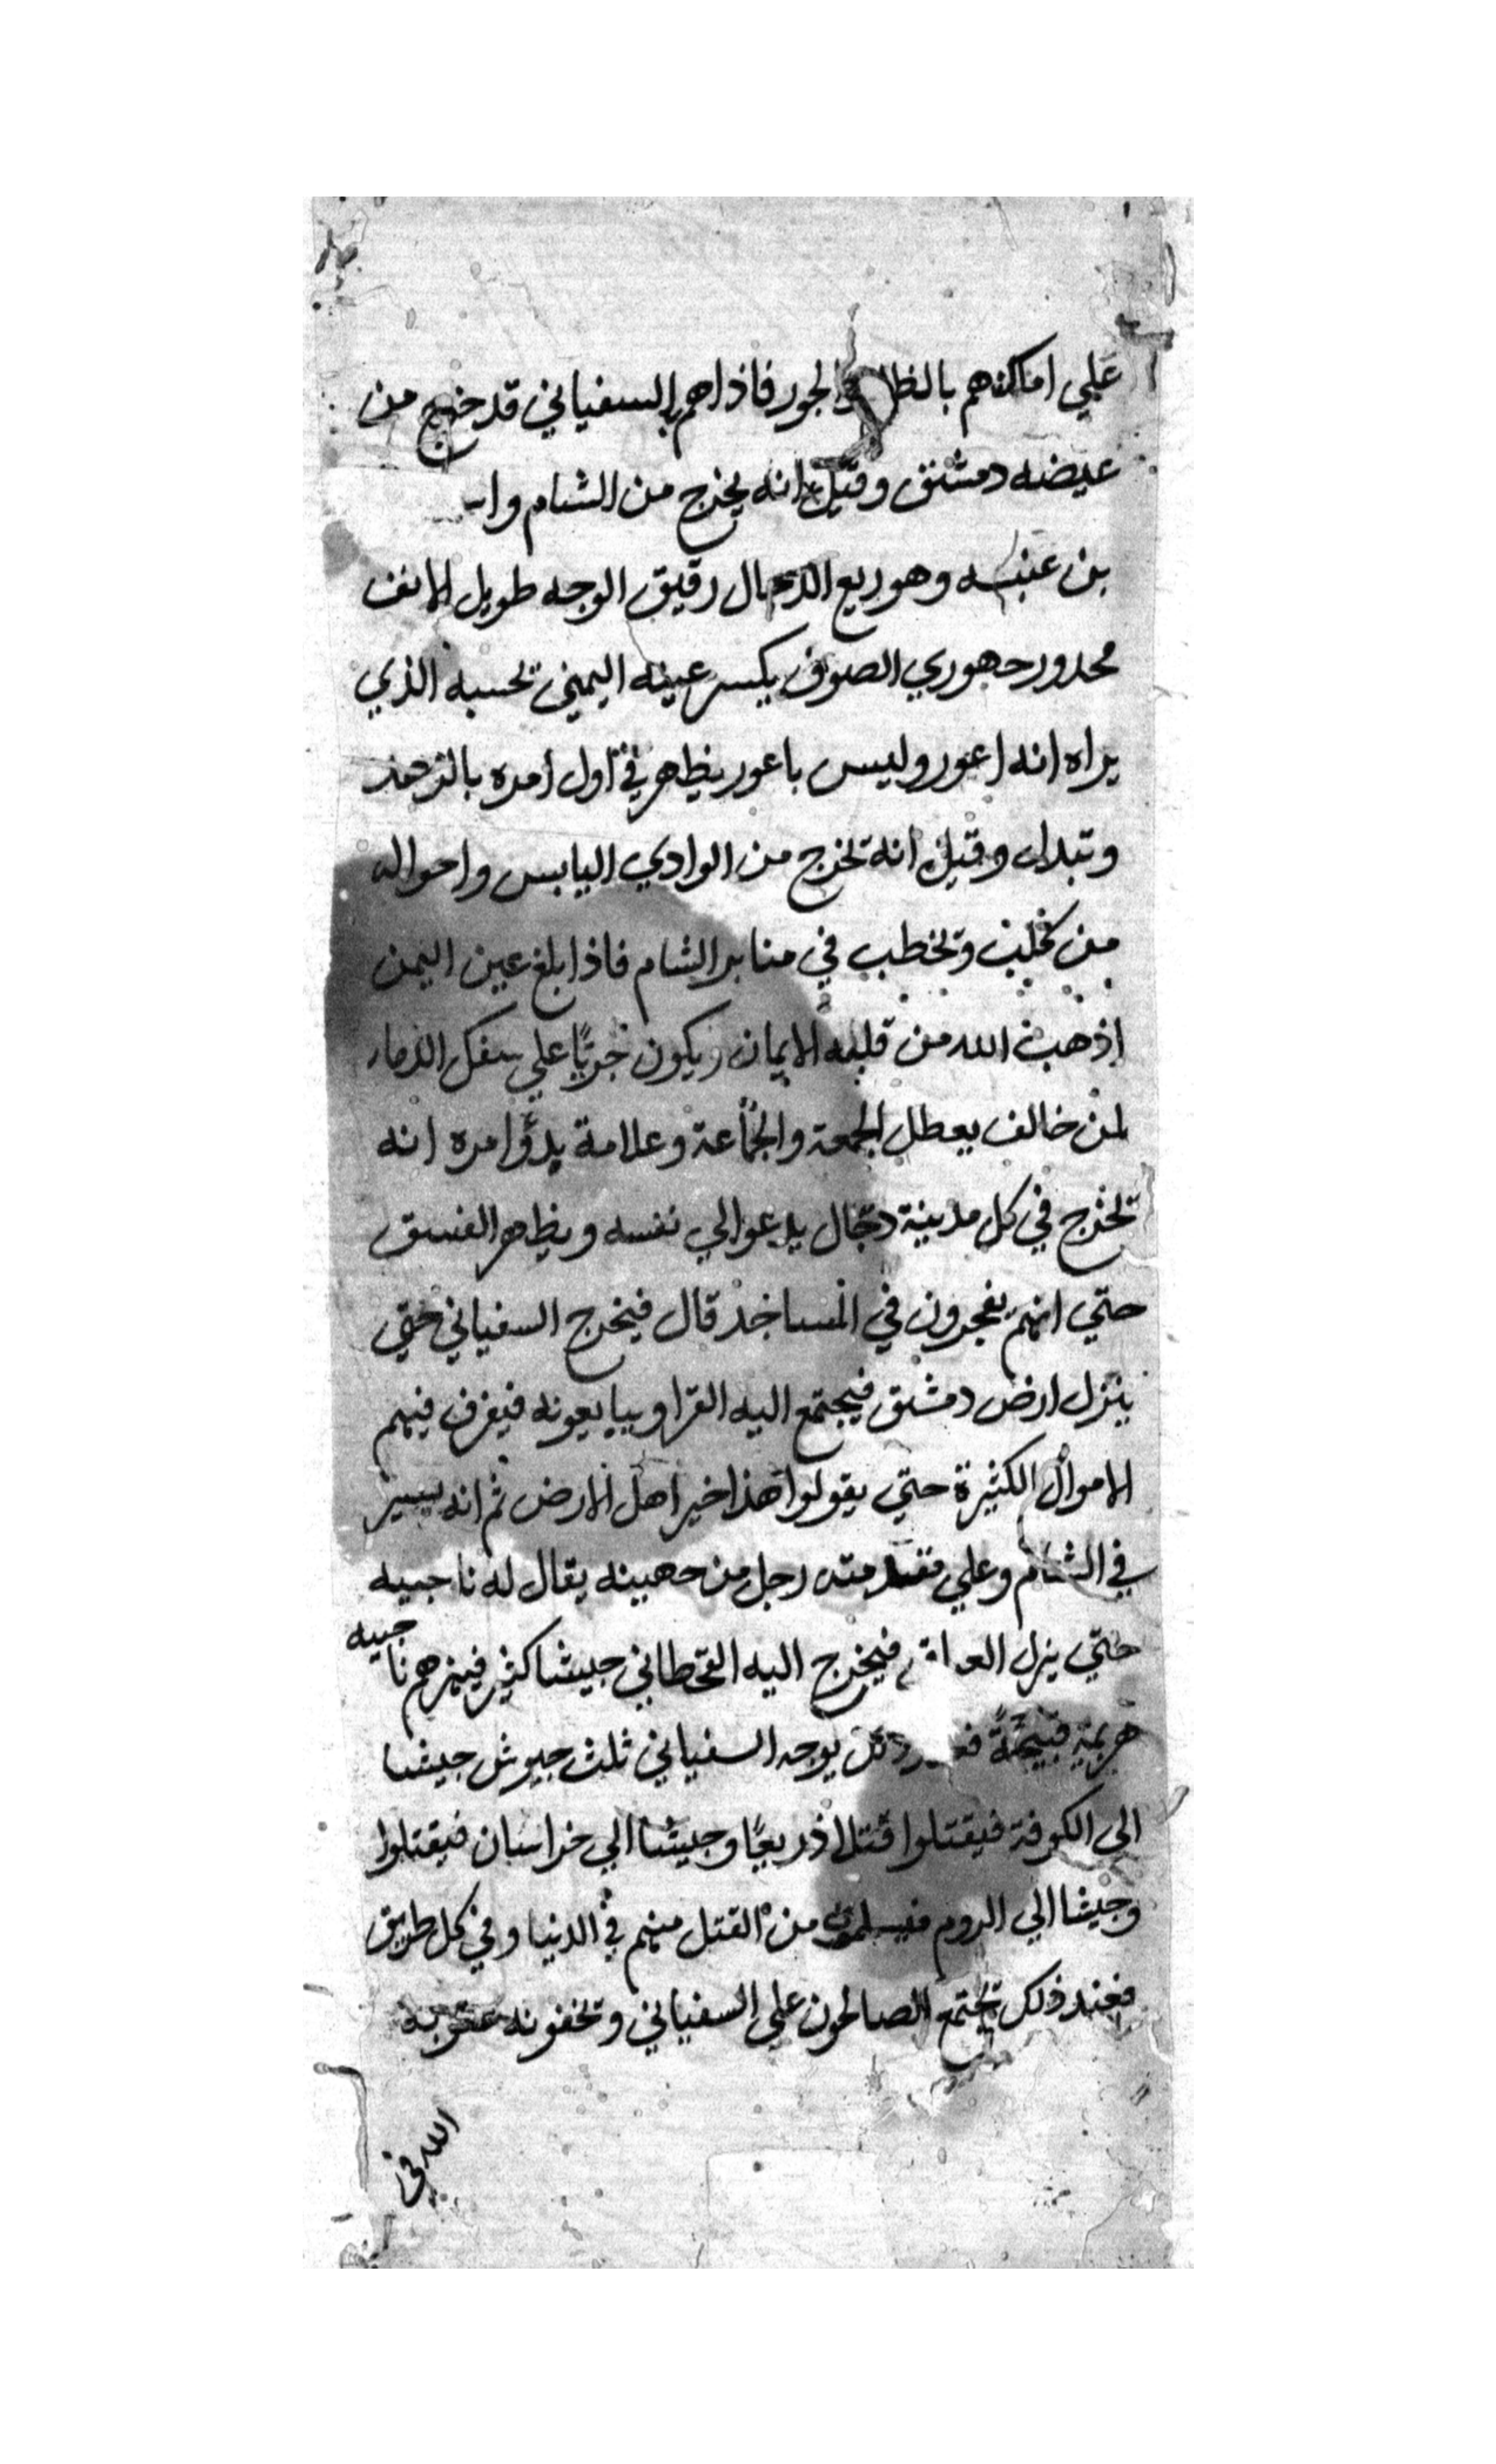 علي اماكنهم بالظلم والجور فاذا هم بالسفياني قد خرج من
غيضه دمشق وقيل انه يخرج من الشام
بن عنبسه وهو ربع الرجال رقيق الوجه طويل الانف
محدور جهوري الصوت يكسر عينه اليمني تحسبه الذي
يراه انه اعور وليس باعور يظهر في اول امره بالتزهد
وقيل انه تخرج من الوادي اليابس واحواله
من وتخطب في منابر الشام فاذا بلغ عين اليمن
اذهب الله من قلبه الايمان ويكون جريًا علي سفك الدماء
لمن خالف يعطل الجمعة والجماعة وعلامة بدؤ امره انه
تخرج في كل مدينة دجال يدعوا الي نفسه ويظهر الفسق
حتي انهم يفجرون في المساجد قال فيخرج السفياني حتي
ينزل ارض دمشق فيجتمع اليه القرا ويبايعونه فيفرق فيهم
الاموال الكثيرة حتي يقولوا هذا خير اهل الارض ثم انه يسير
في الشام وعلي مقدمته رجل من جهينه يقال له ناجيه
حتي ينزل العراق فيخرج اليه القحطاني جيشا كثير فيهزهم ناجيه
هزيمة قبيحةً يوجه السفياني ثلث جيوش جيشا
الي الكوفة فيقتلوا قتلا ذريعًا وجيشا الي خراسان فيقتلوا
وجيشا الي الروم من القتل منهم في الدنيا وفي كل طريق
فعند ذلك تجتمع الصالحون علي السفياني وتخفونه عقوبة
الله في